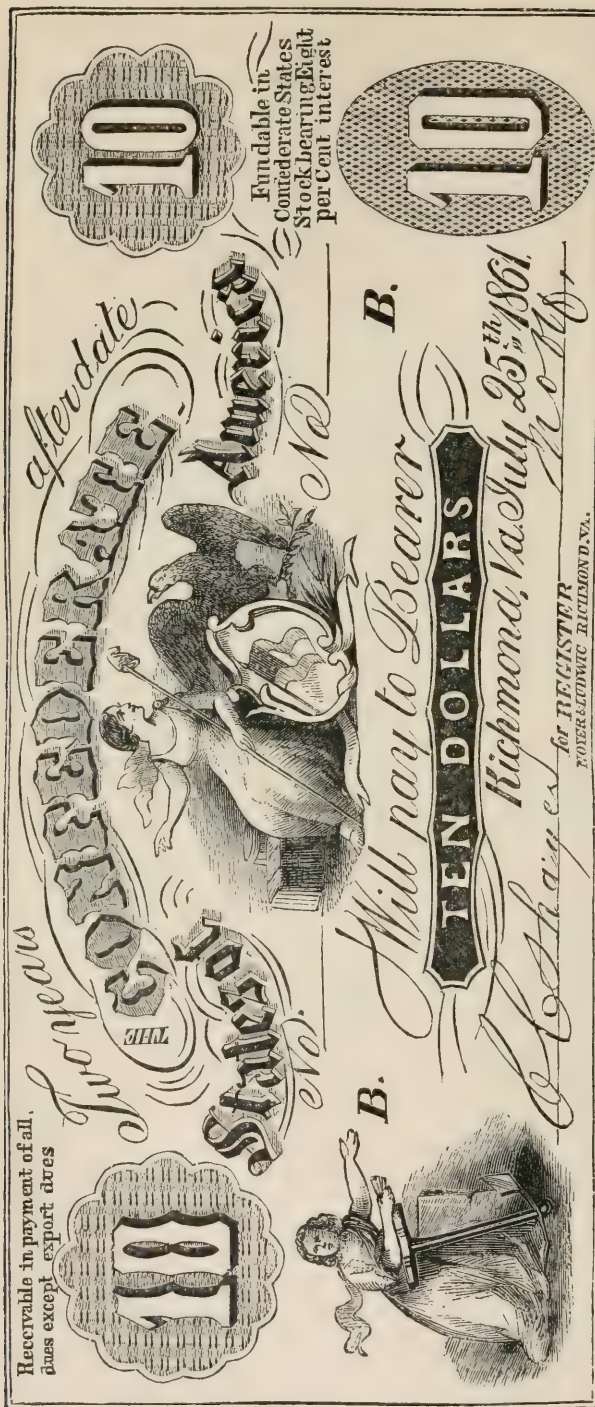 Receivable in payment of all,
dues except export dues
Two years
after date
10
THE
CONFEDERATE
States of
America
No.
No
Fundable in
Confederate States
Stock bearing Eight
per Cent interest
Will pay to Bearer
B.
B.
TEN DOLLARS
Richmond, Va. July 25th 1861.
10
for REGISTER
HOYER & LUDWIG RICHMOND, VA.